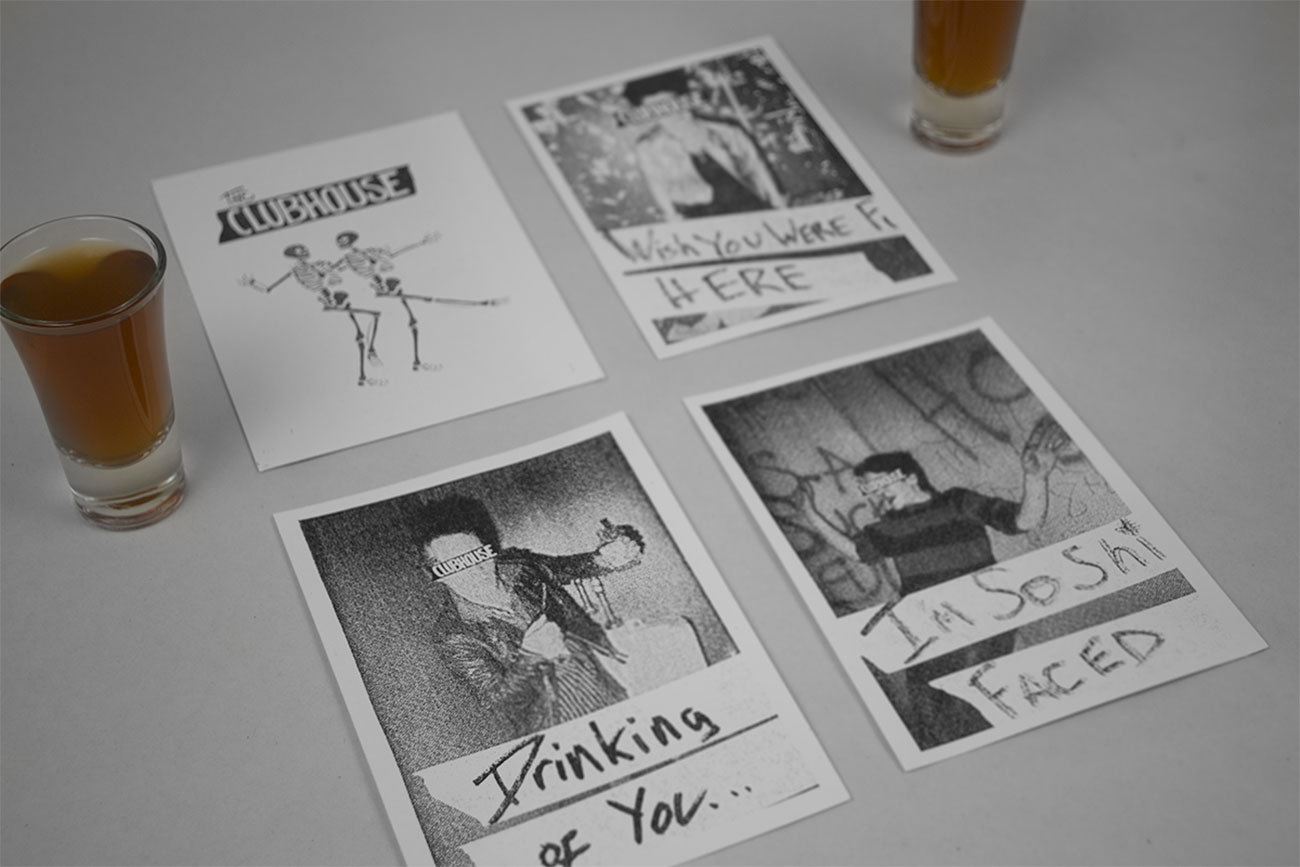 THE
CLUBHOUSE
CLUBHOUSE
WISH YOU WERE
HERE
CLUBHOUSE
Drinking
OF YOU...
I'M SO SHI*
FACED